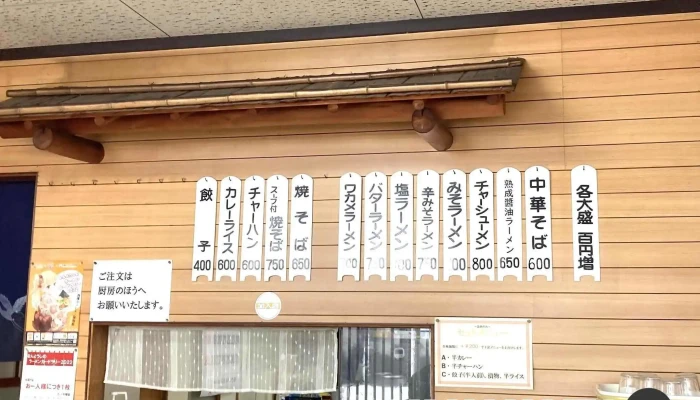 各大盛 百円増
中華そば 600
熟成醤油ラーメン 650
チャーシューメン 800
みそラーメン
辛みそラーメン
塩ラーメン
バターラーメン
ワカメラーメン
焼そば 650
スープ付 焼そば 750
チャーハン 600
カレーライス 600
餃子 400
ご注文は
厨房のほうへ
お願いいたします。
A・半カレー
B・半チャーハン
C・餃子(半人前)、漬物、半ライス
お一人様につき1枚